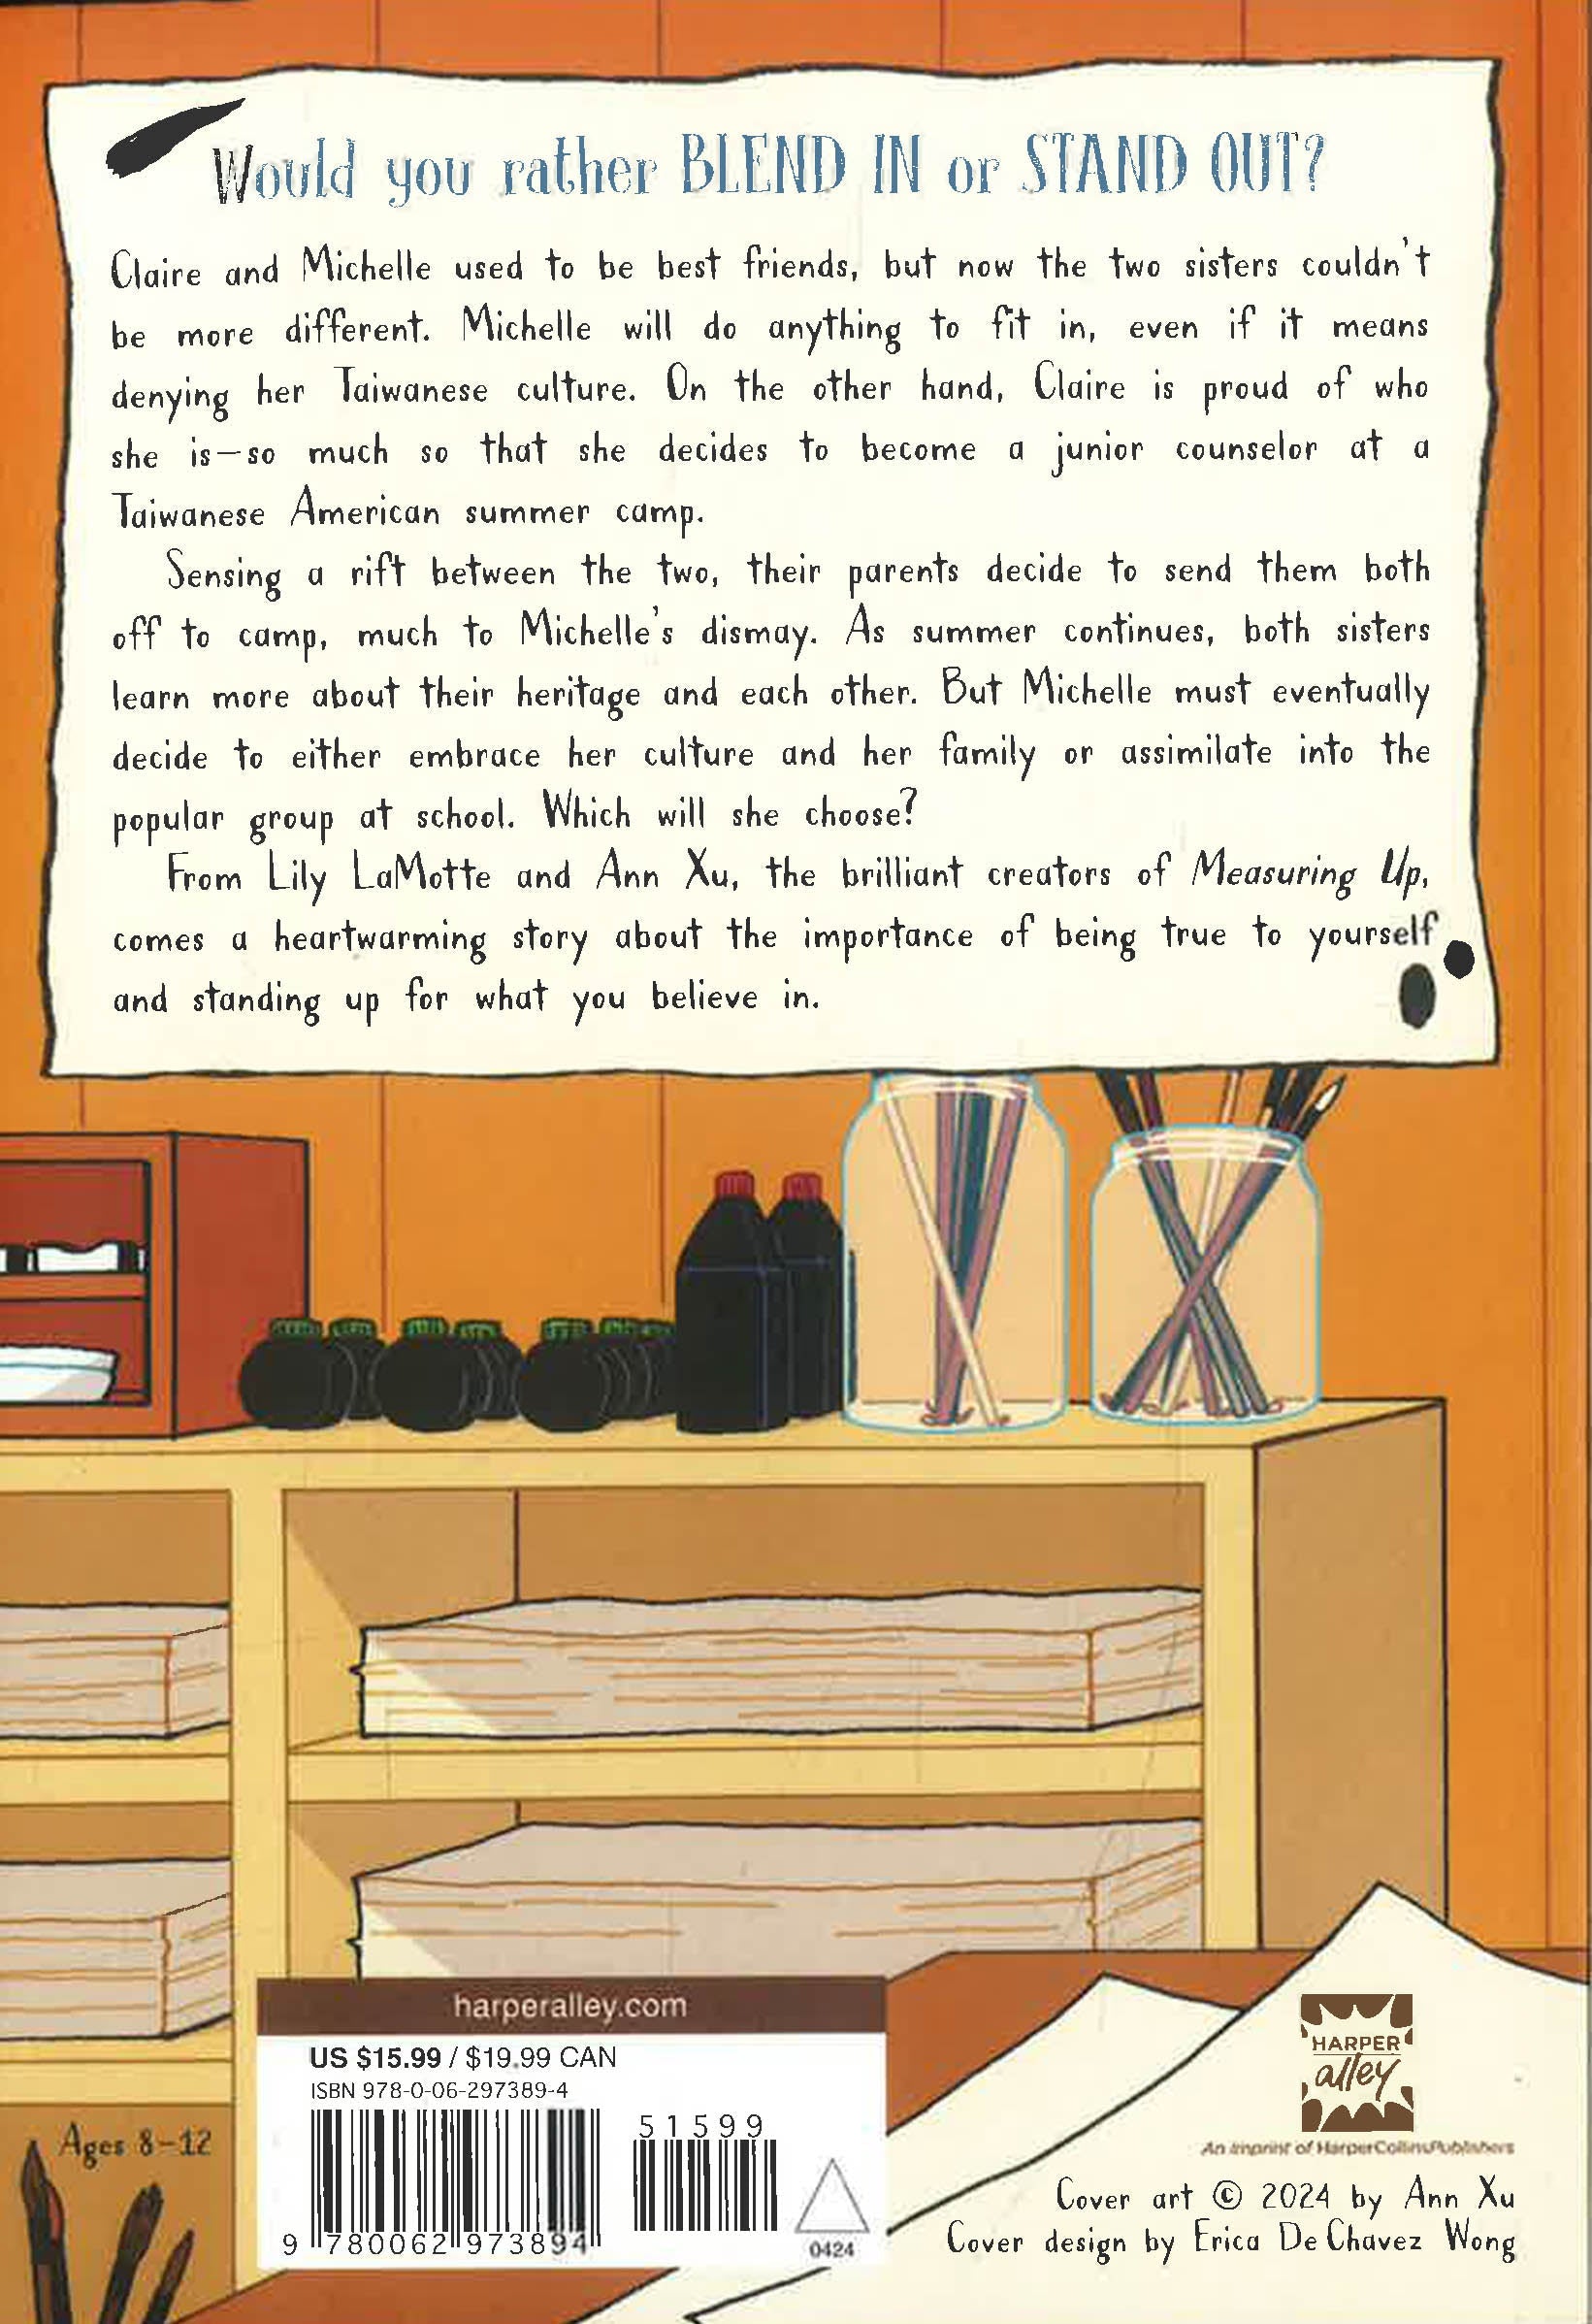 Would you rather BLEND IN or STAND OUT?
Claire and Michelle used to be best friends, but now the two sisters couldn't
be more different. Michelle will do anything to fit in, even if it means
denying her Taiwanese culture. On the other hand, Claire is proud of who
she is—so much so that she decides to become a junior counselor at a
Taiwanese American summer camp.
Sensing a rift between the two, their parents decide to send them both
off to camp, much to Michelle's dismay. As summer continues, both sisters
learn more about their heritage and each other. But Michelle must eventually
decide to either embrace her culture and her family or assimilate into the
popular group at school. Which will she choose?
From Lily LaMotte and Ann Xu, the brilliant creators of Measuring Up,
comes a heartwarming story about the importance of being true to yourself
and standing up for what you believe in.
harperalley.com
US $15.99 / $19.99 CAN
ISBN 978-0-06-297389-4
51599
9 780062 973894
0424
Ages 8–12
HARPER
alley
An Imprint of HarperCollinsPublishers
Cover art © 2024 by Ann Xu
Cover design by Erica De Chavez Wong